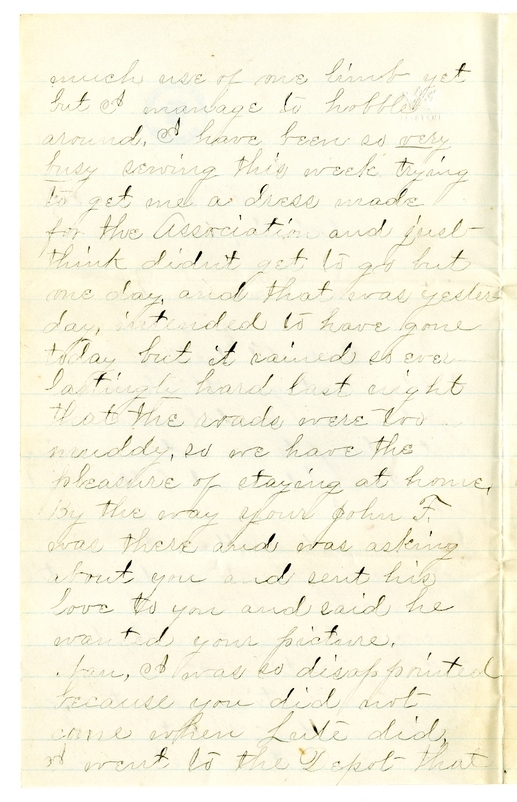 much use of one limb yet
but I manage to hobble
around. I have been so very
busy sewing this week trying
to get me a dress made
for the Association and just
think didnt get to go but
one day, and that was yester
day, intended to have gone
today but it rained so ever
lastingly hard last night
that the roads were too
muddy, so we have the
pleasure of staying at home.
By the way your John F.
was there and was asking
about you and sent his
love to you and said he
wanted your picture.
Nan, I was so disappointed
because you did not
come when Lute did,
I went to the Depot that